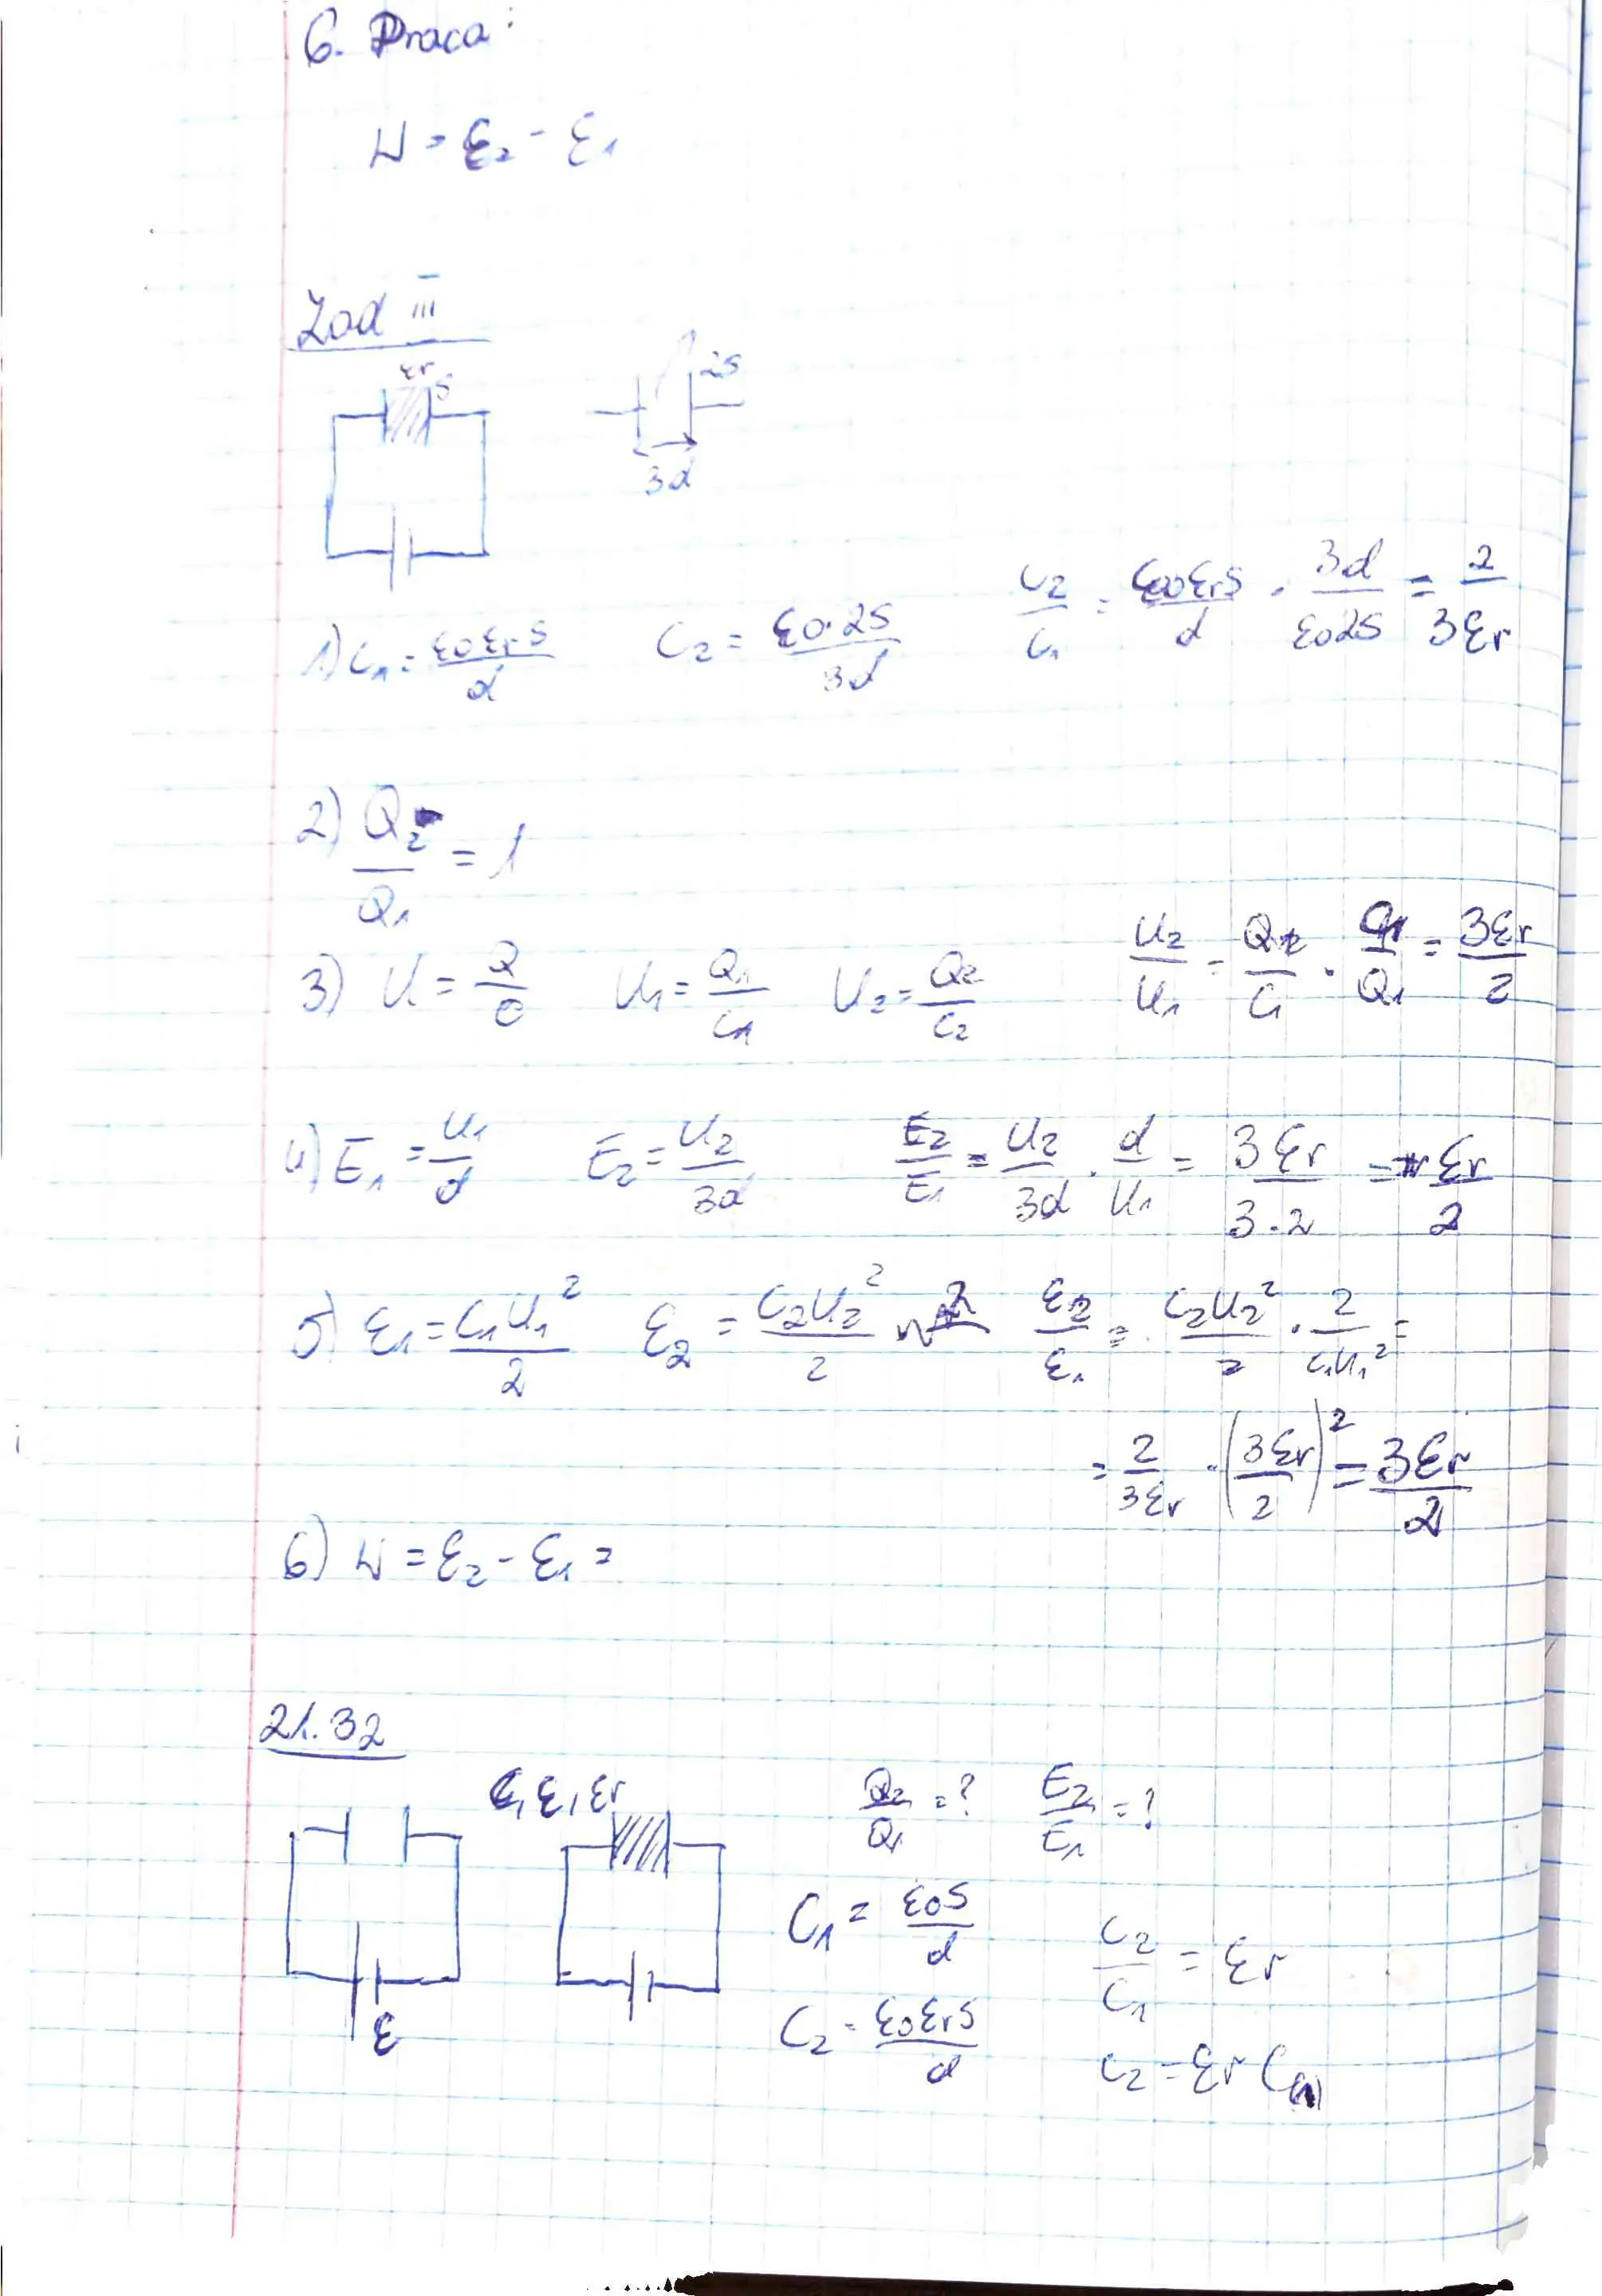 6. Praca:
W = ε₂ - ε₁
Zad III
εr S 2S
3d
1) C₁ = ε0 εr S / d C₂ = ε0·2S / 3d C₂/C₁ = ε0 εr S / d · 3d / ε0 2S = 2 / 3εr
2) Q₂/Q₁ = 1
3) U = Q/C U₁ = Q₁/C₁ U₂ = Q₂/C₂ U₂/U₁ = Q₂/C₁ · C₁/Q₁ = 3εr/2
4) E₁ = U₁/d E₂ = U₂/3d E₂/E₁ = U₂/3d · d/U₁ = 3εr / 3·2 = εr/2
5) ε₁ = C₁U₁²/2 ε₂ = C₂U₂²/2 ε₂/ε₁ = C₂U₂²/2 · 2/C₁U₁² =
= 2/3εr · (3εr/2)² = 3εr/2
6) W = ε₂ - ε₁ =
21.32
ε, εr Q₂/Q₁ = ? E₂/E₁ = ?
C₁ = ε0S/d C₂/C₁ = εr
ε C₂ = ε0εrS/d C₂ = εr C₁